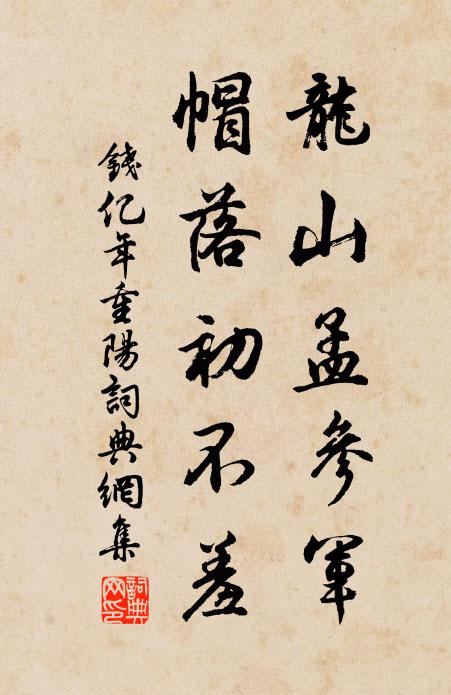 龍山孟參軍
帽落初不羞
錢亿年重陽詞典網集
詞典
网印